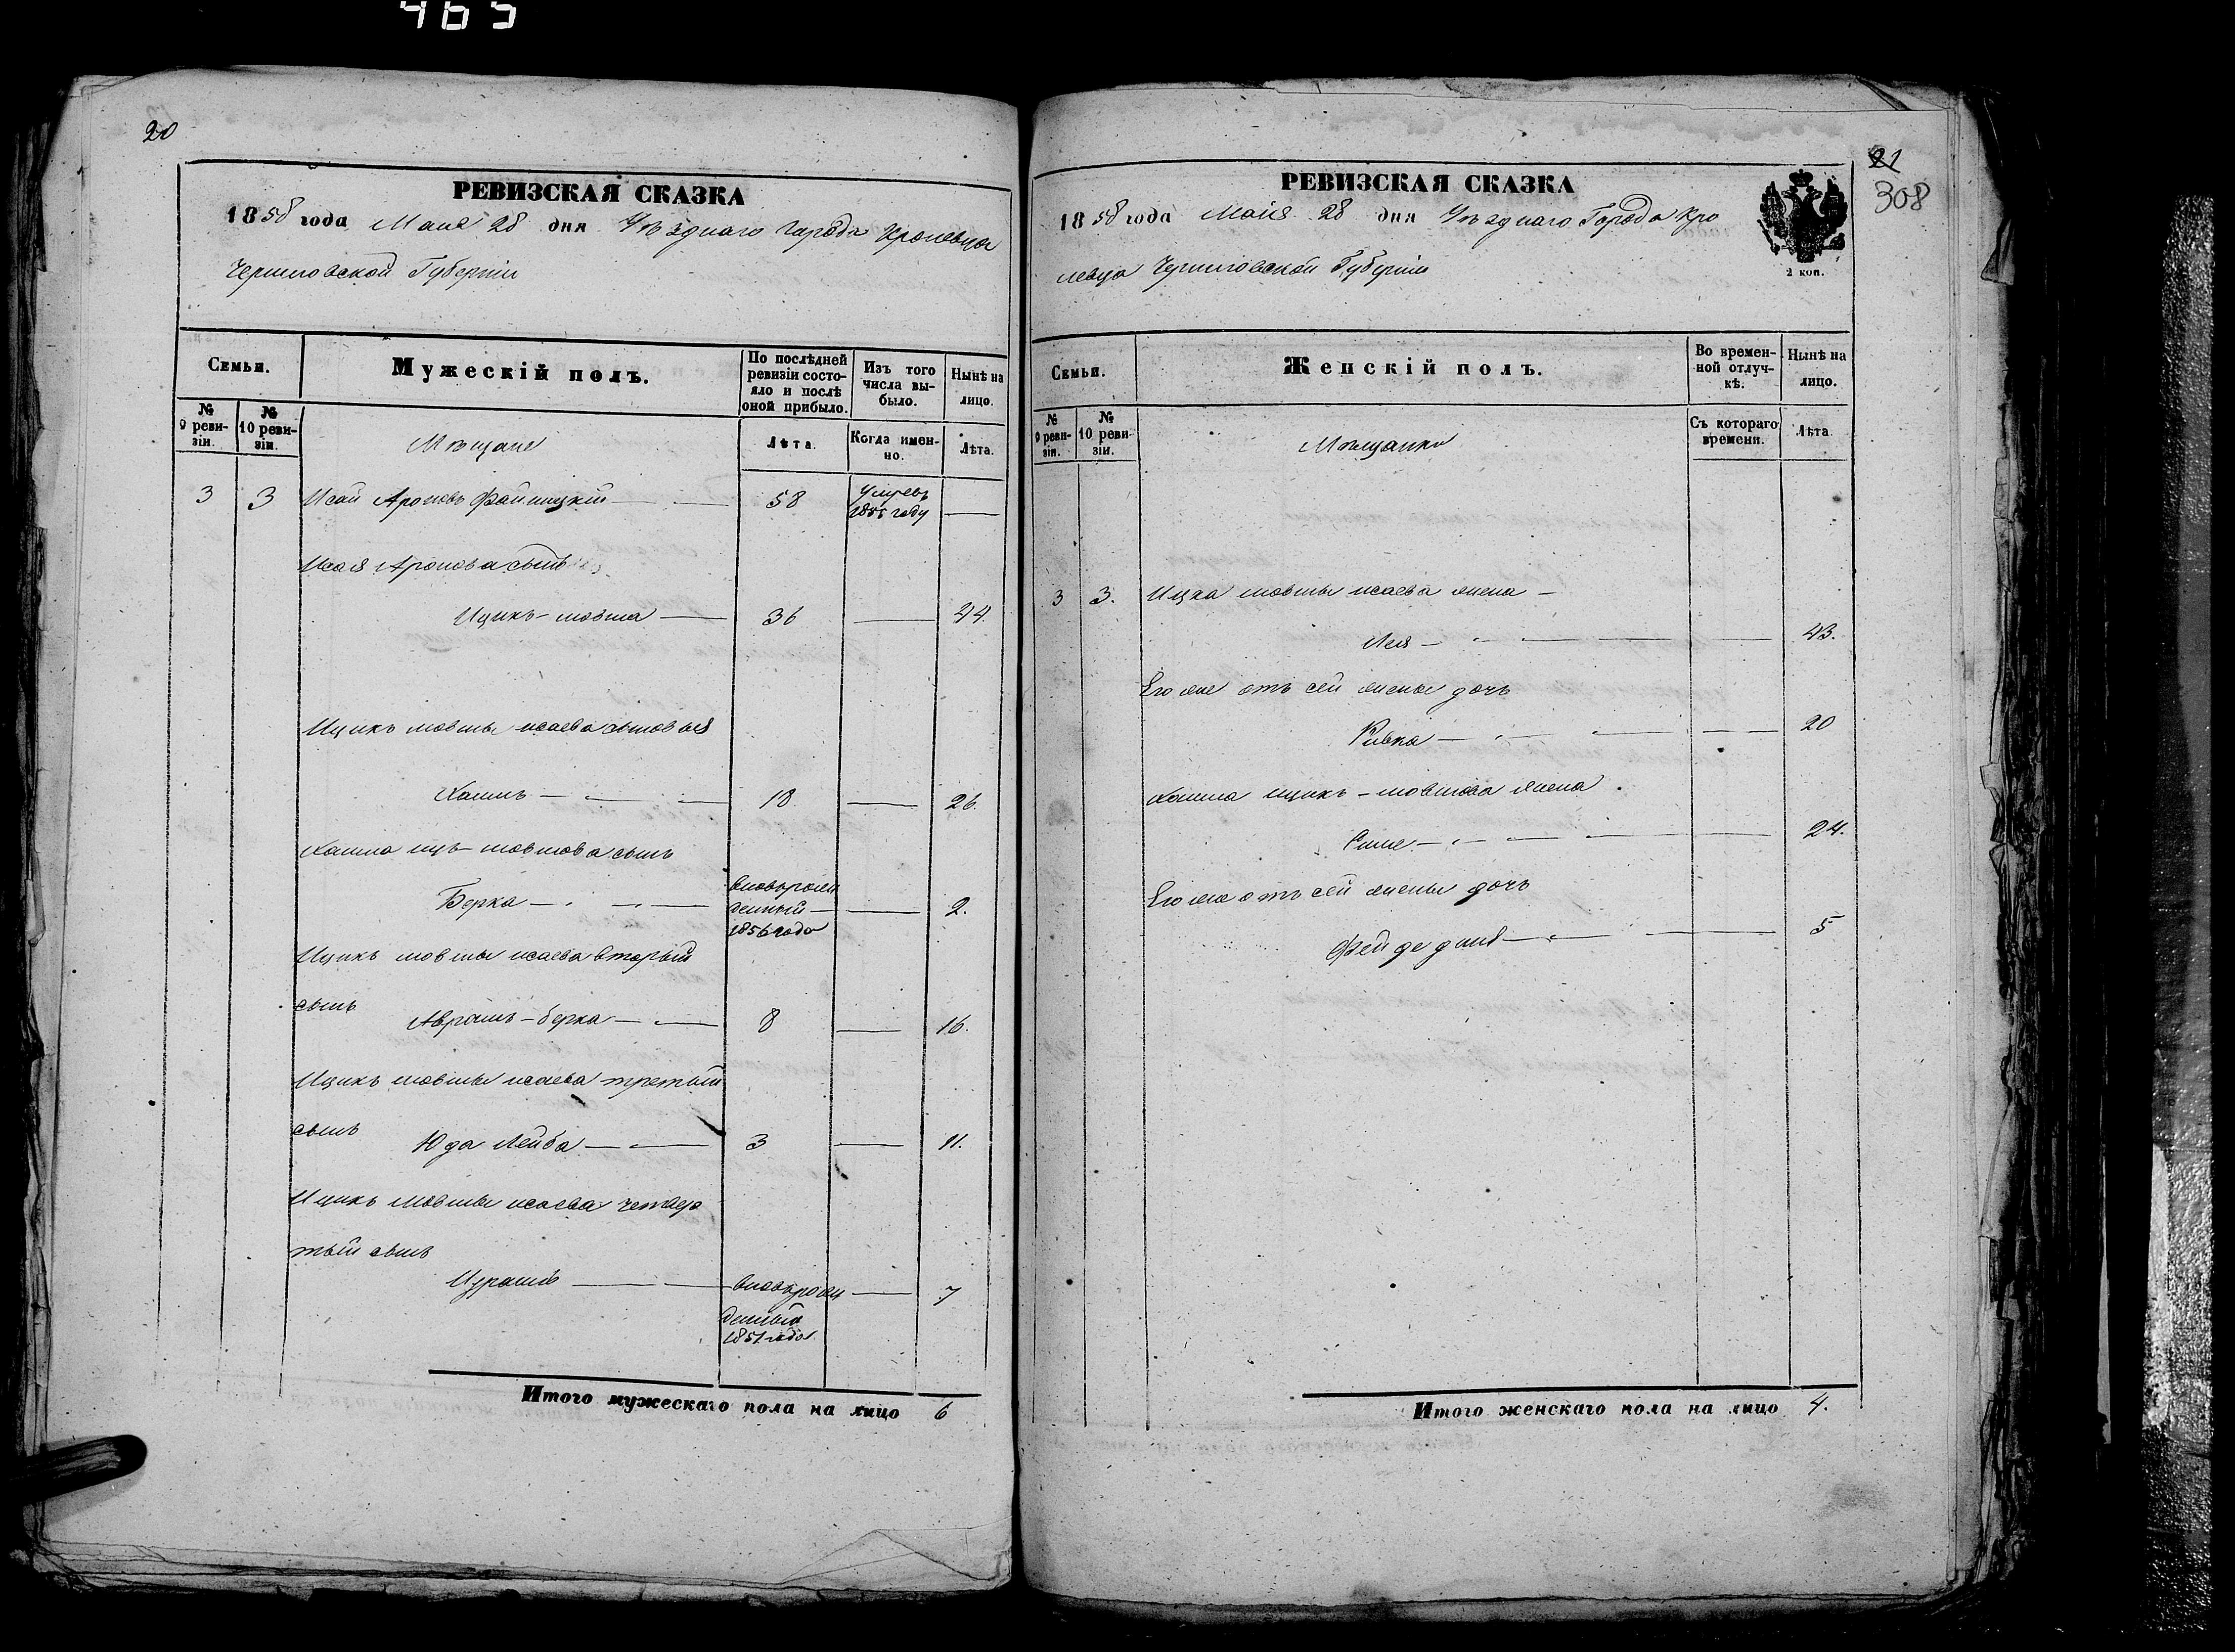 465
20
РЕВИЗСКАЯ СКАЗКА
1858 года Маия 28 дня Уѣзднаго Города Кролевца
Черниговской Губерніи
Семьи.
Мужескій полъ.
По послѣдней ревизіи состояло и послѣ оной прибыло.
Изъ того числа выбыло.
Нынѣ на лицо.
№ 9 ревизіи.
№ 10 ревизіи.
Мѣщане
Лѣта.
Когда именно.
Лѣта.
3 3 Исай Ароновъ 58 Умеръ
1855 году
Исая Аронова сынъ
Ицикъ-мовша 36 44.
Ицикъ мовшы исаева сыновья
Хаимъ 18 26.
Хаима иц-мовшова сынъ
Берка вновьрож
денный 2.
1856 года
Ицикъ мовшы исаева вторый
сынъ Аврамъ-берка 8 16.
Ицикъ мовшы исаева третый
сынъ Юда Лейба 3 11.
Ицикъ мовшы исаева четвер
тый сынъ
вновьрож 7
денный
1851 года
Итого мужескаго пола на лицо 6
21
308
РЕВИЗСКАЯ СКАЗКА
1858 года Маия 28 дня Уѣзднаго Города Кро
левца Черниговской Губерніи
2 коп.
Семьи.
Женскій полъ.
Во временной отлучкѣ.
Нынѣ на лицо.
№ 9 ревизіи.
№ 10 ревизіи.
Мѣщанки
Съ котораго времени.
Лѣта.
3 3. Ицка мовшы исаева жена
Лея 43.
Его же отъ сей жены дочь
Ривка 20
Хаима ицикъ-мовшова жена
24.
Его же отъ сей жены дочь
5
Итого женскаго пола на лицо 4.